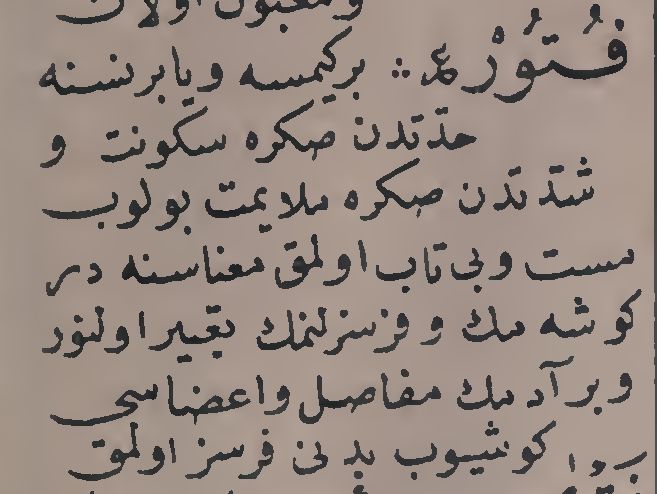 ومقبول اولان
فُتُورْ ع ∴ بر كيمسه ويا بر نسنه
حدّتدن صكره سكونت و
شدّتدن صكره ملايمت بولوب
سست وبى تاب اولمق معناسنه در
كوشه مك و فرسزلنمك تعبير اولنور
وبر آدمك مفاصل واعضاسى
كوشيوب بدنى فرسز اولمق